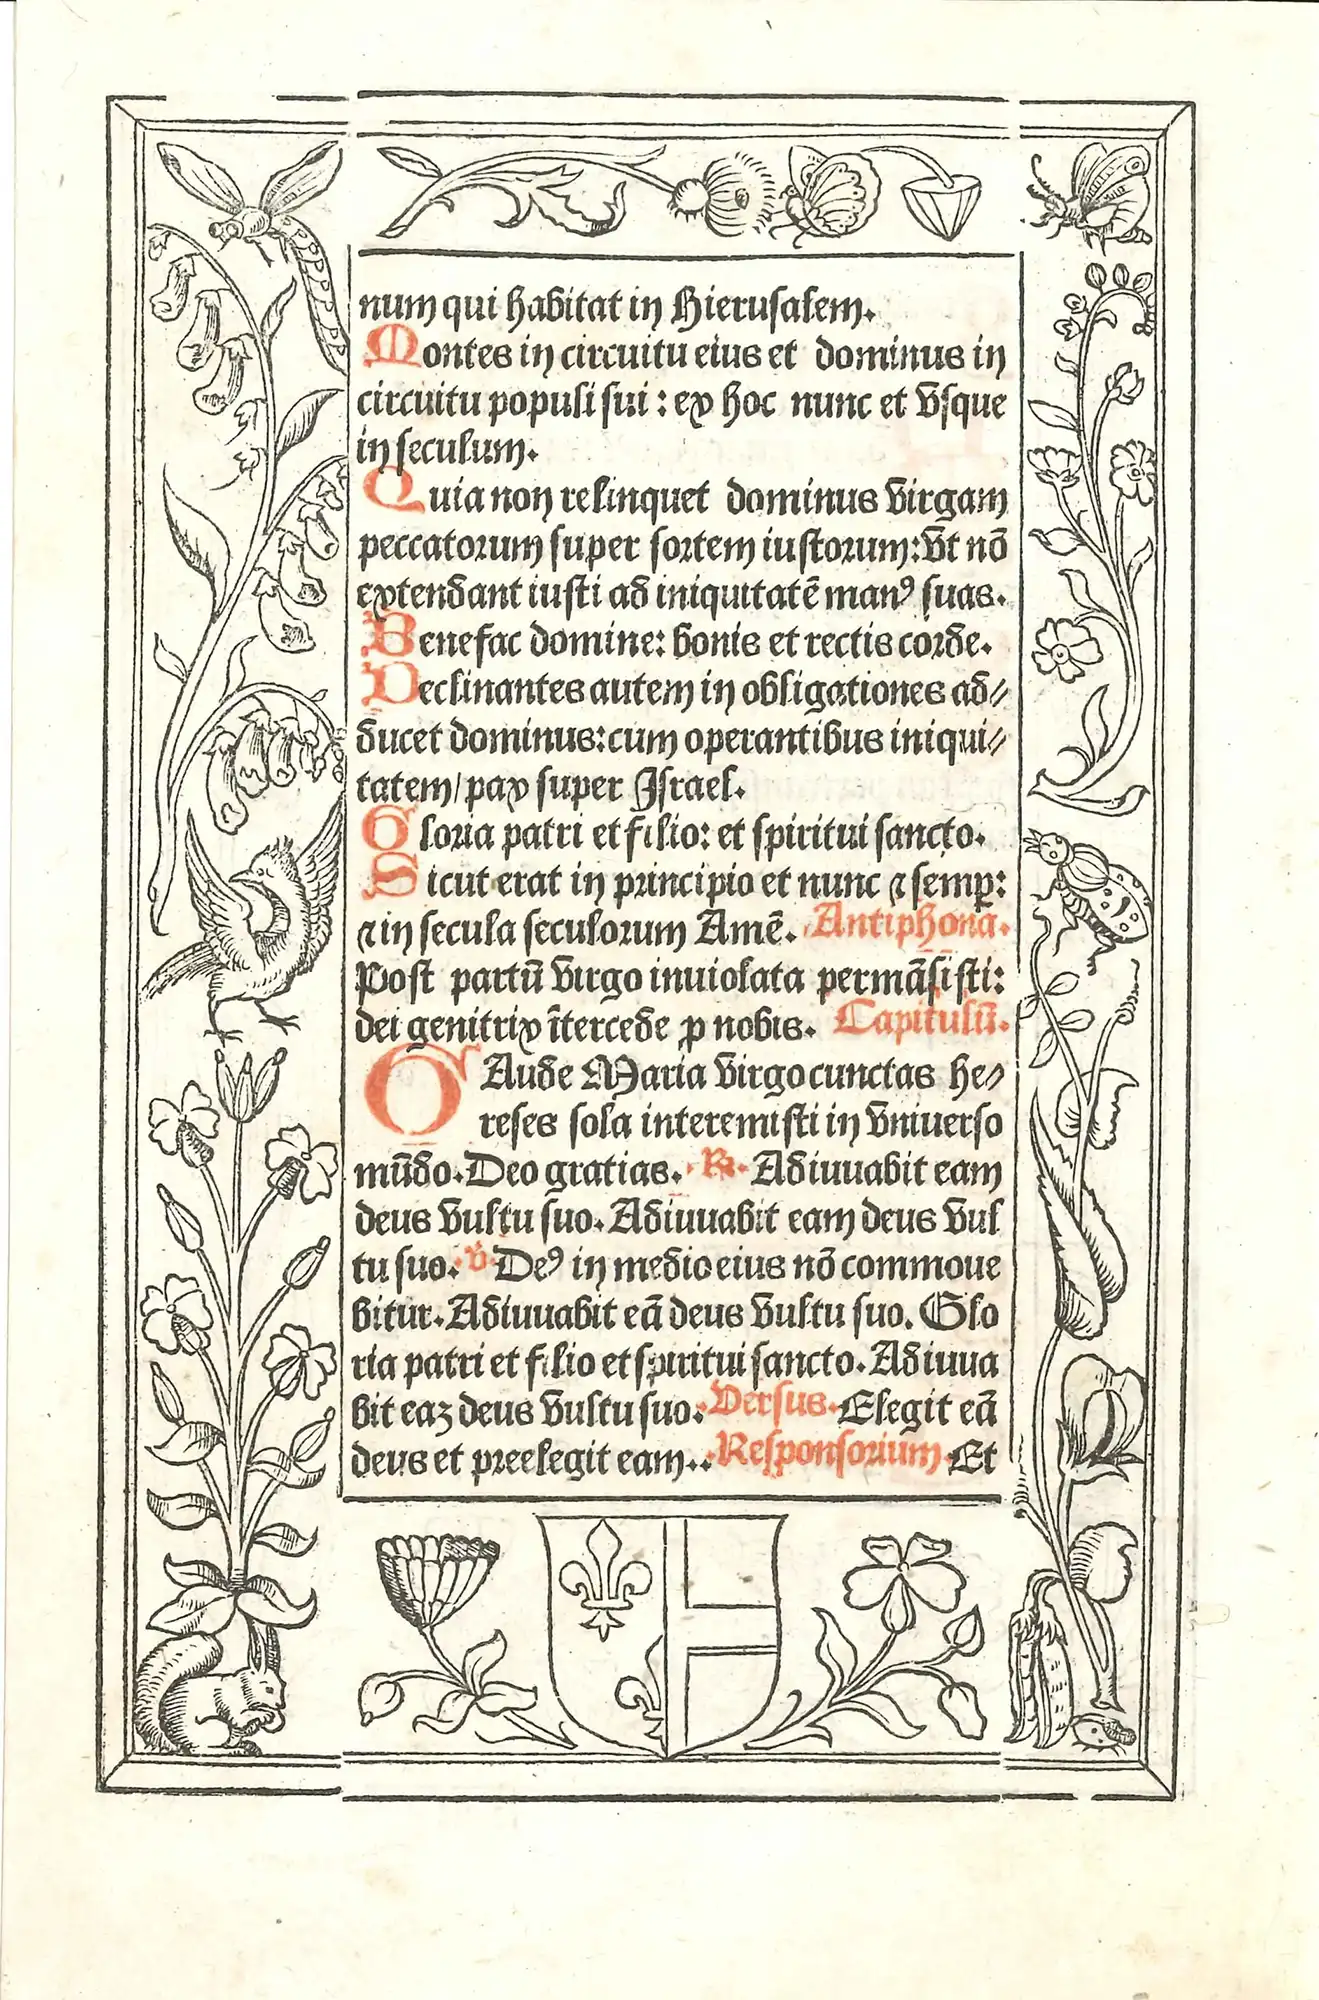 num qui habitat in Hierusalem.
Montes in circuitu eius et dominus in
circuitu populi sui : ex hoc nunc et vsque
in seculum.
Quia non relinquet dominus virgam
peccatorum super sortem iustorum: vt nō
extendant iusti ad iniquitatē manꝰ suas.
Benefac domine: bonis et rectis corde.
Declinantes autem in obligationes ad⸗
ducet dominus: cum operantibus iniqui⸗
tatem/ pax super Israel.
Gloria patri et filio: et spiritui sancto.
Sicut erat in principio et nunc ⁊ semꝑ:
⁊ in secula seculorum Amē. Antiphona.
Post partū virgo inuiolata permāsisti:
dei genitrix ītercede ꝓ nobis. Capitulū.
GAude Maria virgo cunctas he⸗
reses sola interemisti in vniuerso
mūdo. Deo gratias. ℞. Adiuuabit eam
deus vultu suo. Adiuuabit eam deus vul
tu suo. ℣. Deꝰ in medio eius nō commoue
bitur. Adiuuabit eā deus vultu suo. Glo
ria patri et filio et spiritui sancto. Adiuua
bit eaꝫ deus vultu suo. Versus. Elegit eā
deus et preelegit eam.. Responsorium. Et